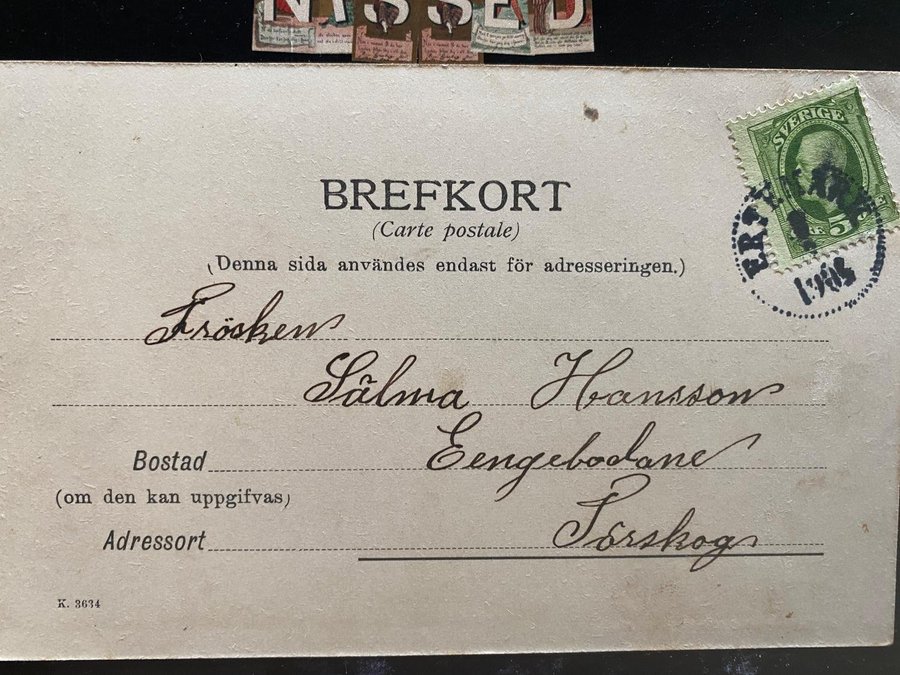 NISSED
BREFKORT
(Carte postale)
(Denna sida användes endast för adresseringen.)
SVERIGE
5
1903
Fröcken
Sälma Hansson
Bostad Eengebodane
(om den kan uppgifvas)
Adressort Torskog
K. 3634